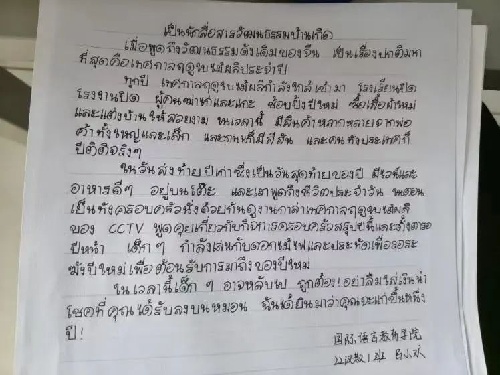 เป็นนักสื่อสารวัฒนธรรมบ้านเกิด
เมื่อพูดถึงวัฒนธรรมดั้งเดิมของจีน เป็นเรื่องปกติมาก
ที่สุดคือเทศกาลฤดูใบไม้ผลิประจำปี
ทุกปี เทศกาลฤดูใบไม้ผลิกำลังใกล้เข้ามา โรงเรียนปิด
โรงงานปิด ผู้คน ซื้อของปีใหม่ ซื้อเสื้อผ้าใหม่
และแต่งบ้านให้สวยงาม ในเวลานี้ มีสินค้าหลากหลายจากพ่อ
ค้าทั้งใหญ่และเล็ก และคนทั้งประเทศก็
ปิติดีจริงๆ
ในวันส่งท้ายปีเก่าซึ่งเป็นวันสุดท้ายของปี มีไวน์และ
อาหารดีๆ อยู่บนโต๊ะ และเราพูดถึงชีวิตประจำวัน
เป็นทั้งครอบครัวนั่งด้วยกันดูงานกาล่าเทศกาลฤดูใบไม้ผลิ
ของ CCTV พูดคุยเกี่ยวกับ ครอบครัวสรุปปีนี้และตั้งตารอ
ปีหน้า เด็กๆ กำลังเล่นกับดอกไม้ไฟและประทัดเพื่อรอระ
ฆังปีใหม่เพื่อต้อนรับการมาถึงของปีใหม่
ในเวลานี้เด็ก ๆ อาจหลับไป ถูกต้อง!! อย่าลืม เงินนำ
โชคที่คุณได้รับลงบนหมอน ฉันได้ยินมาว่าคุณจะ
ปี!
国际语言教育学院
汉教1班